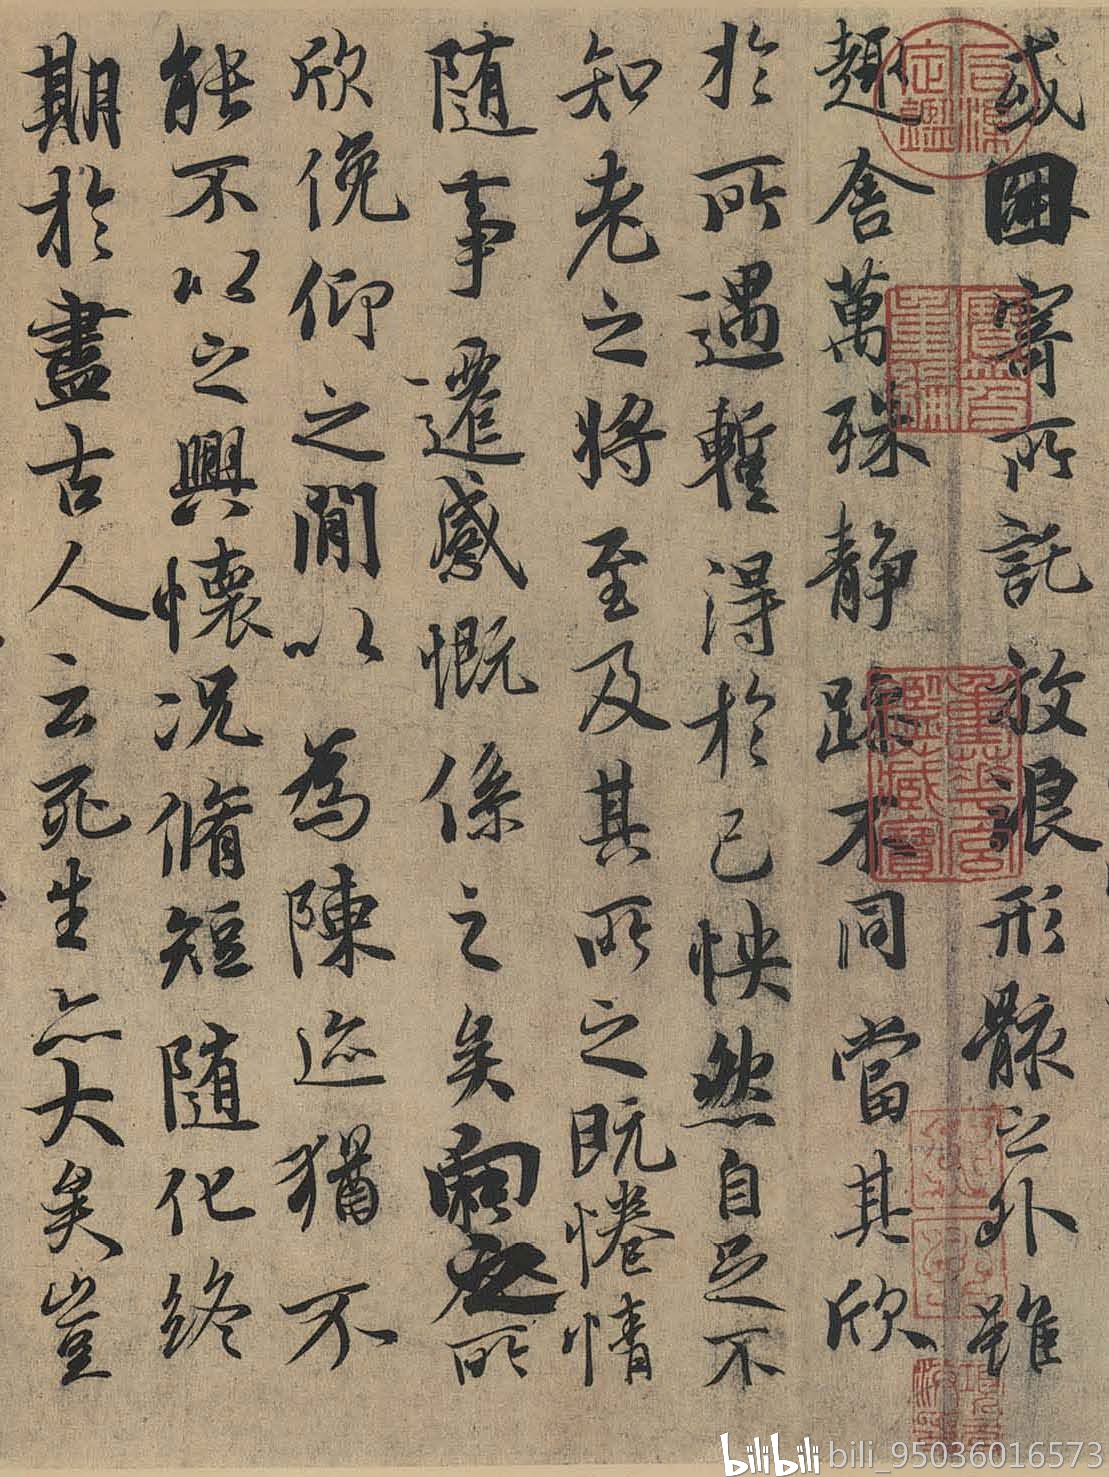 或因寄所託放浪形骸之外雖
趣舍萬殊静躁不同當其欣
於所遇暫得於己怏然自足不
知老之將至及其所之既惓情
随事遷感慨係之矣向之所
欣俛仰之閒以為陳迹猶不
能不以之興懷況脩短随化終
期於盡古人云死生亦大矣豈
石渠定鑑
寶笈重編
重華宮鑑藏寶
bilibili bili_95036016573